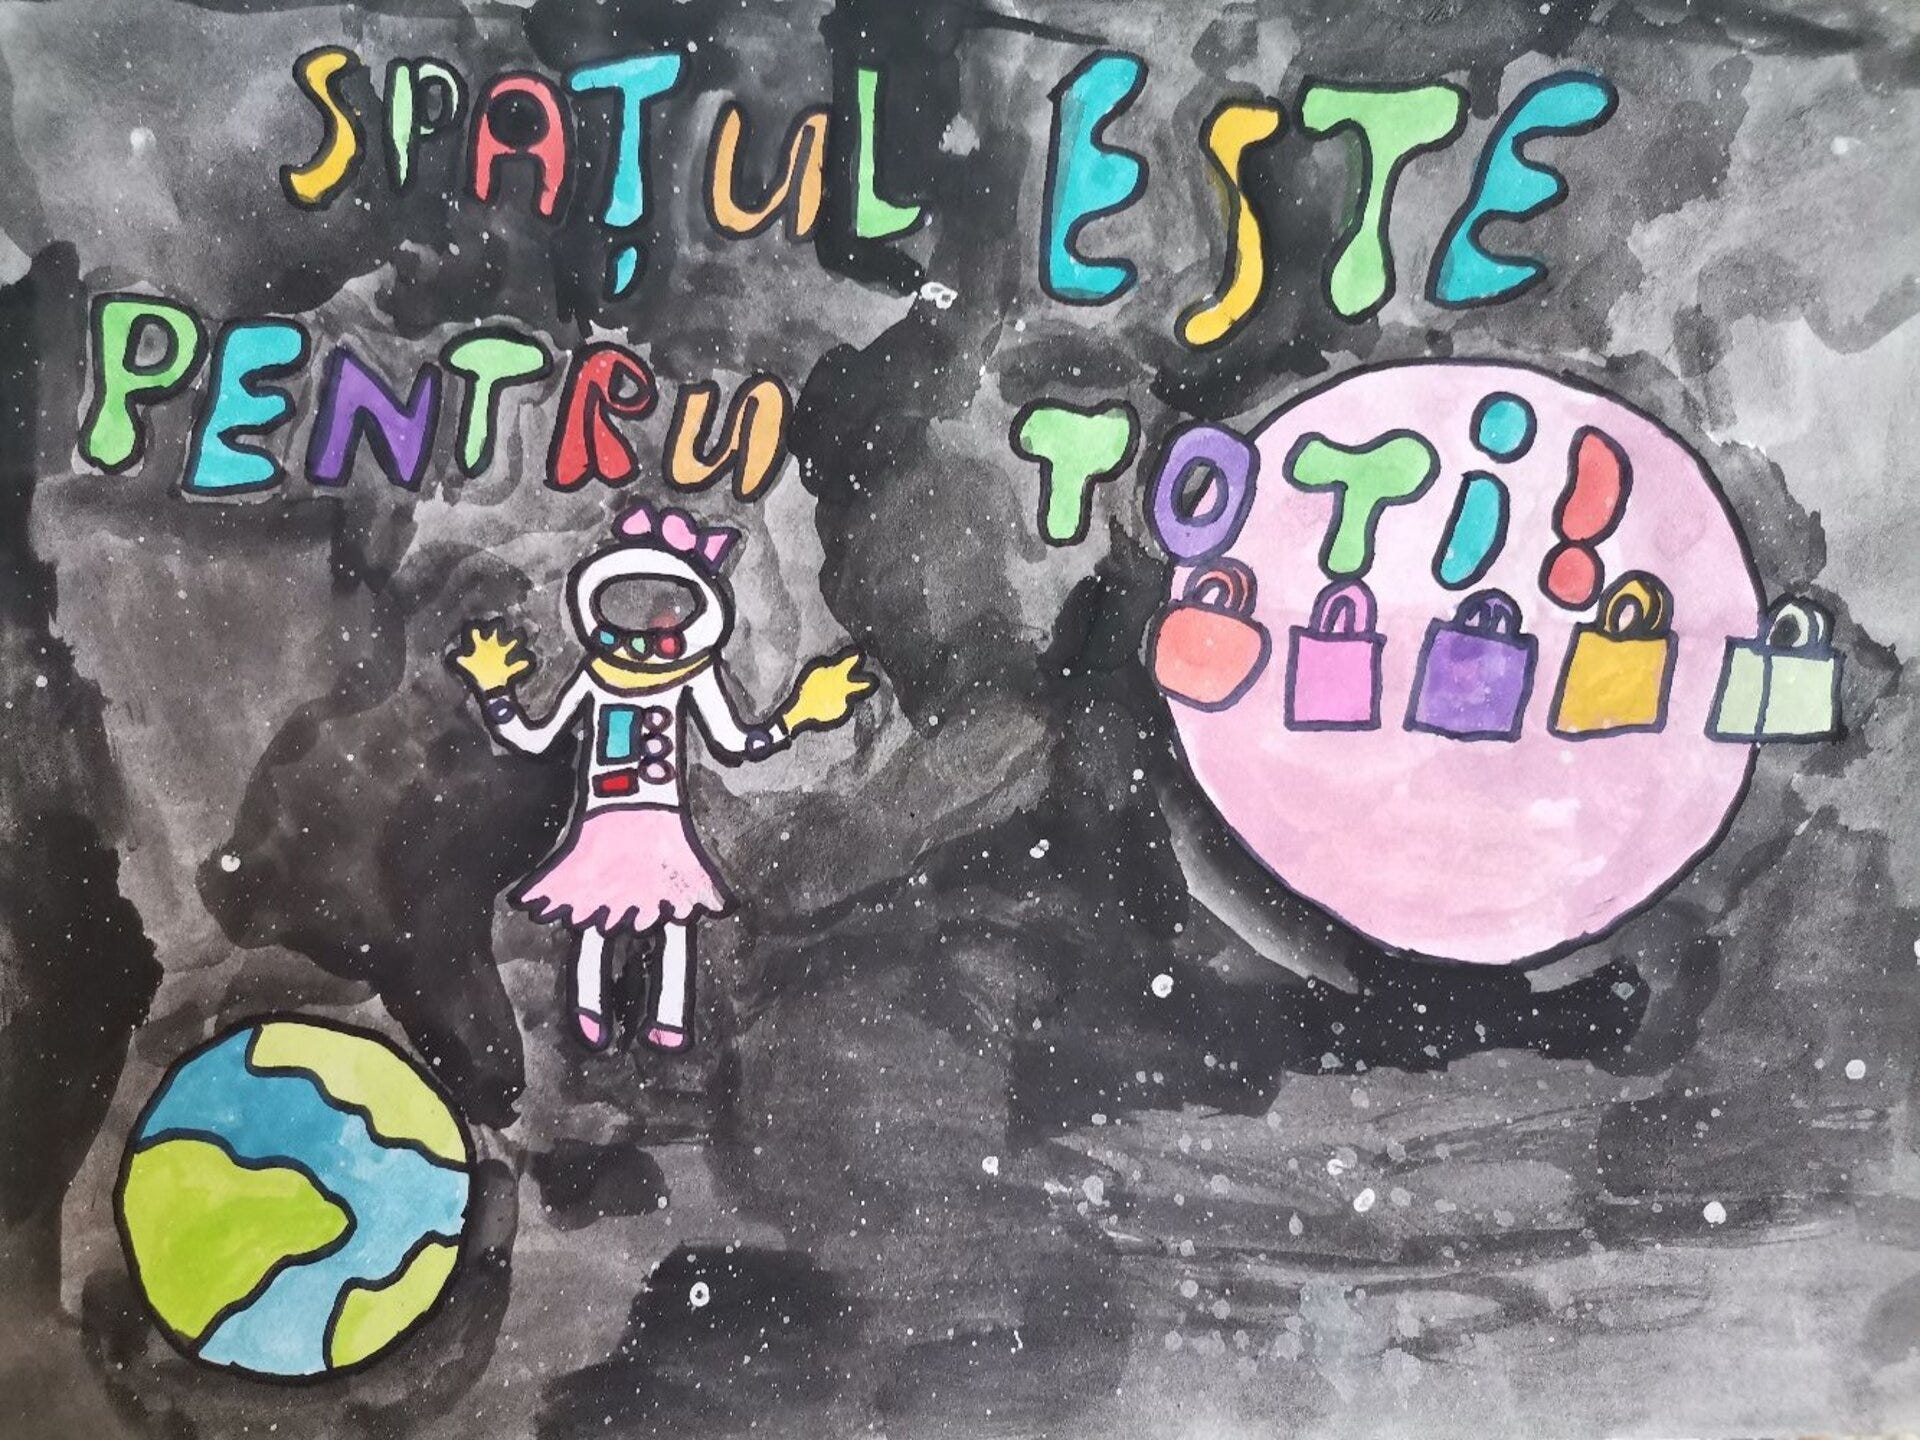 SPAȚUL ESTE
PENTRU TOTi!